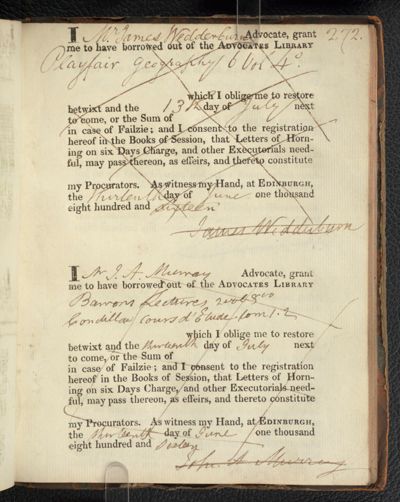 I Mr James Wedderburn Advocate, grant 272.
me to have borrowed out of the ADVOCATES LIBRARY
Playfair Geography 6 Vol 4o.
which I oblige me to restore
betwixt and the 13th day of July next
to come, or the Sum of
in case of Failzie; and I consent to the registration
hereof in the Books of Session, that Letters of Horn-
ing on six Days Charge, and other Executorials need-
ful, may pass thereon, as effeirs, and thereto constitute
my Procurators. As witness my Hand, at EDINBURGH,
the thirteenth day of June one thousand
eight hundred and sixteen
James Wedderburn
I Mr J. A. Murray Advocate, grant
me to have borrowed out of the ADVOCATES LIBRARY
Barrons Lectures 2 vol 8vo
Condillac Cours d'Etude tom 1.2
which I oblige me to restore
betwixt and the thirteenth day of July next
to come, or the Sum of
in case of Failzie; and I consent to the registration
hereof in the Books of Session, that Letters of Horn-
ing on six Days Charge, and other Executorials need-
ful, may pass thereon, as effeirs, and thereto constitute
my Procurators. As witness my Hand, at EDINBURGH,
the thirteenth day of June one thousand
eight hundred and
John A Murray